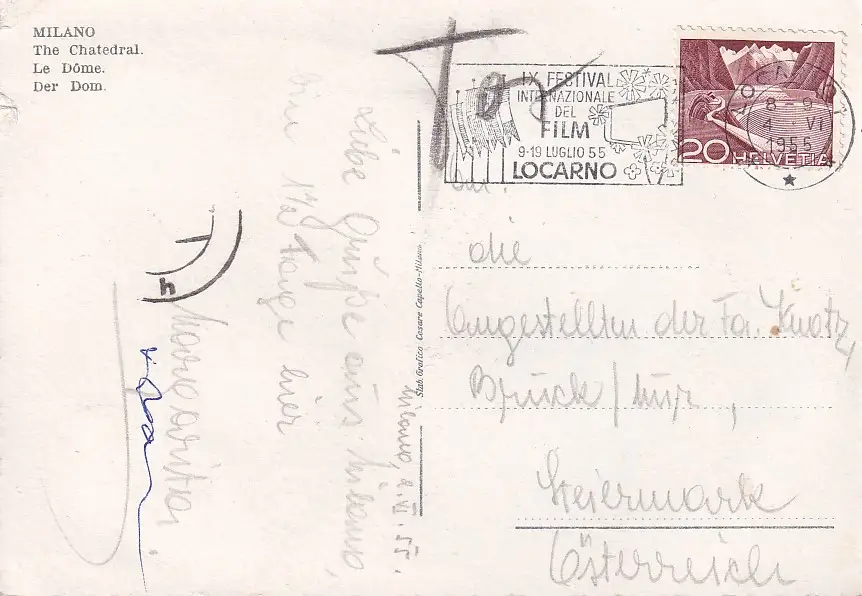 MILANO
The Chatedral.
Le Dôme.
Der Dom.
T
IX FESTIVAL
INTERNAZIONALE
DEL
FILM
9-19 LUGLIO 55
LOCARNO
8-9
VI
1955
20 HELVETIA
Stab. Grafico Cesare Capello-Milano
Milano, 2.VI.55.
Liebe Grüße aus Milano,
bin 1½ Tage hier
Margarita.
T
h
An:
die
Angestellten der Fa. Knotz,
Bruck/Mur,
Steiermark
Österreich